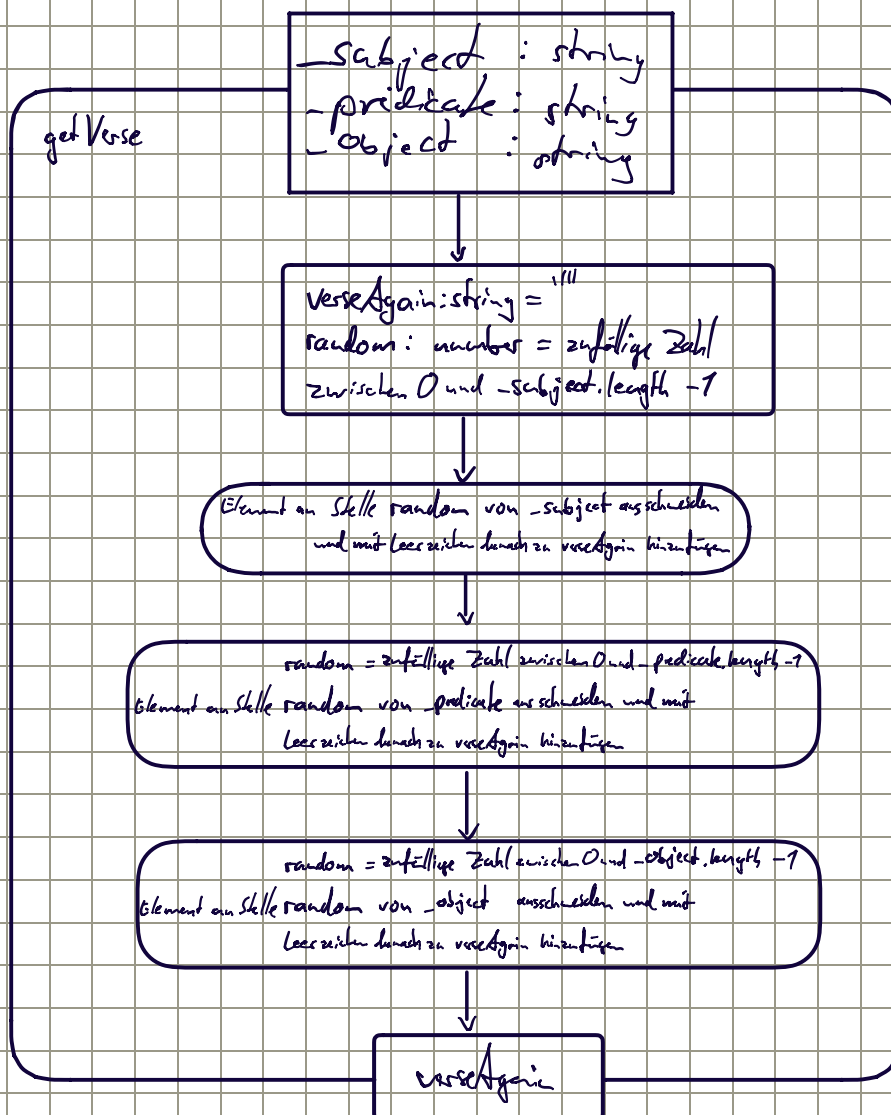 _subject : string
_predicate : string
_object : string
getVerse
verseAgain: string = ""
random: number = zufällige Zahl
zwischen 0 und _subject.length -1
Element an Stelle random von _subject ausschneiden
und mit Leerzeichen danach zu verseAgain hinzufügen
random = zufällige Zahl zwischen 0 und _predicate.length -1
Element an Stelle random von _predicate ausschneiden und mit
Leerzeichen danach zu verseAgain hinzufügen
random = zufällige Zahl zwischen 0 und _object.length -1
Element an Stelle random von _object ausschneiden und mit
Leerzeichen danach zu verseAgain hinzufügen
verseAgain